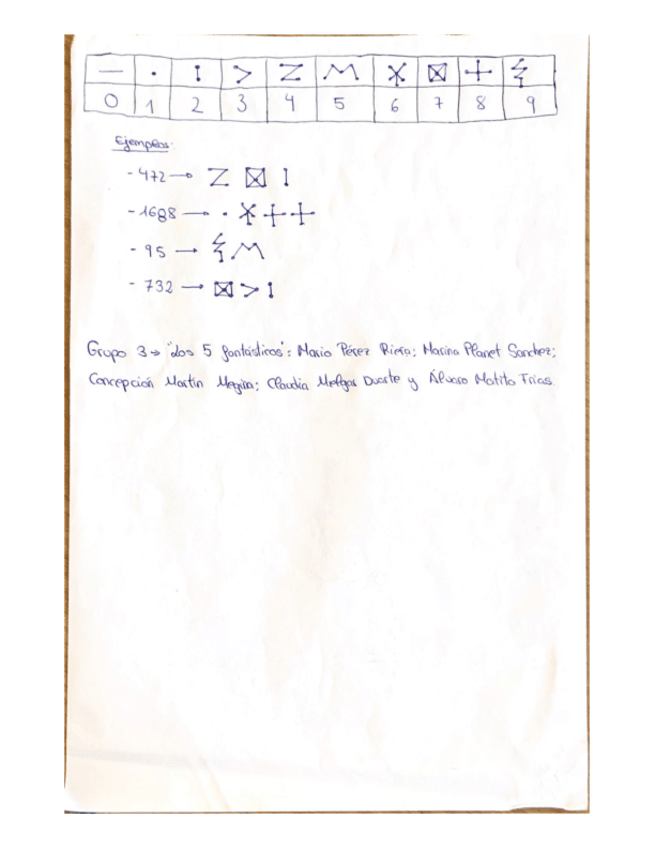 0 1 2 3 4 5 6 7 8 9
Ejemplos:
- 472 → Z ⊠ I
- 1688 → · X + +
- 95 →
- 732 → ⊠ > I
Grupo 3 → "Los 5 fantásticos": Mario Pérez; Marina Planet Sánchez;
Concepción Martín Megina; Claudia Melgar Duarte y Álvaro Matito Trias.